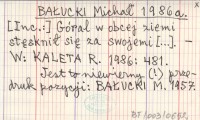 BAŁUCKI Michał 1986a.
[Inc.:] Góral w obcej ziemi
stęsknił się za swojemi [...]. –
W: KALETA R. 1986: 481.
Jest to niewierny (!) prze-
druk pozycji: BAŁUCKI M. 1957.